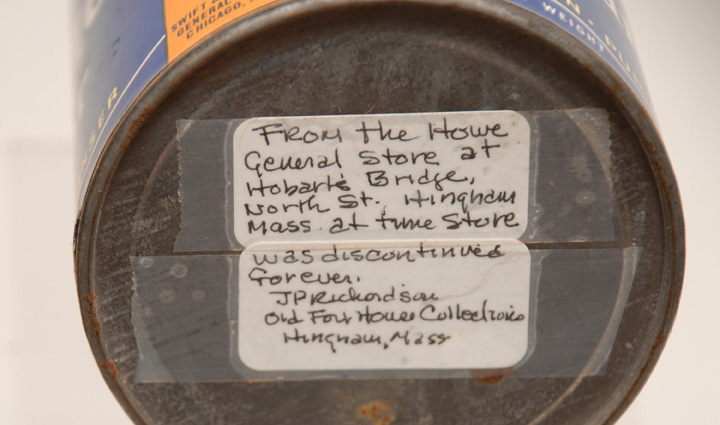 SWIFT
GENERAL
CHICAGO,
SER
WEIGHT
From the Howe
General Store at
Hobart's Bridge,
North St. Hingham
Mass. at time Store
was discontinued
forever.
JP Richardson
Old Four House Collections
Hingham, Mass